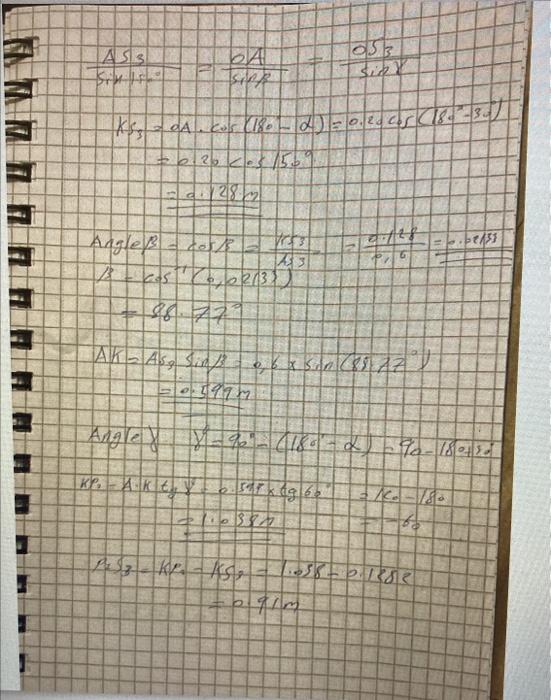 AS3 / Sin 150° = OA / sinβ = OS3 / sinγ
KS3 = OA . cos (180° - α) = 0.20 cos (180° - 30°)
= 0.20 cos 150°
= 0.128 m
Angle β = cosβ = KS3 / AS3 = 0.128 / 0,6 = 0.02133
β = cos⁻¹ (0,02133)
= 88.77°
AK = AS3 Sinβ = 0,6 x sin (88.77°)
= 0.599m
Angle γ γ = 90° - (180° - α) = 90 - 180+30
KP2 = A.K tg γ = 0.599 x tg 60° = 120 - 180
= 1.038m = -60
P2S3 = KP2 - KS3 = 1.038 - 0.1282
= 0.91m